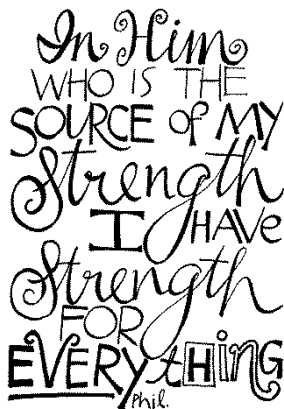 In Him
WHO IS THE
SOURCE of MY
Strength
I HAVe
Strength
FOR
EVERYtHiNG
Phil.